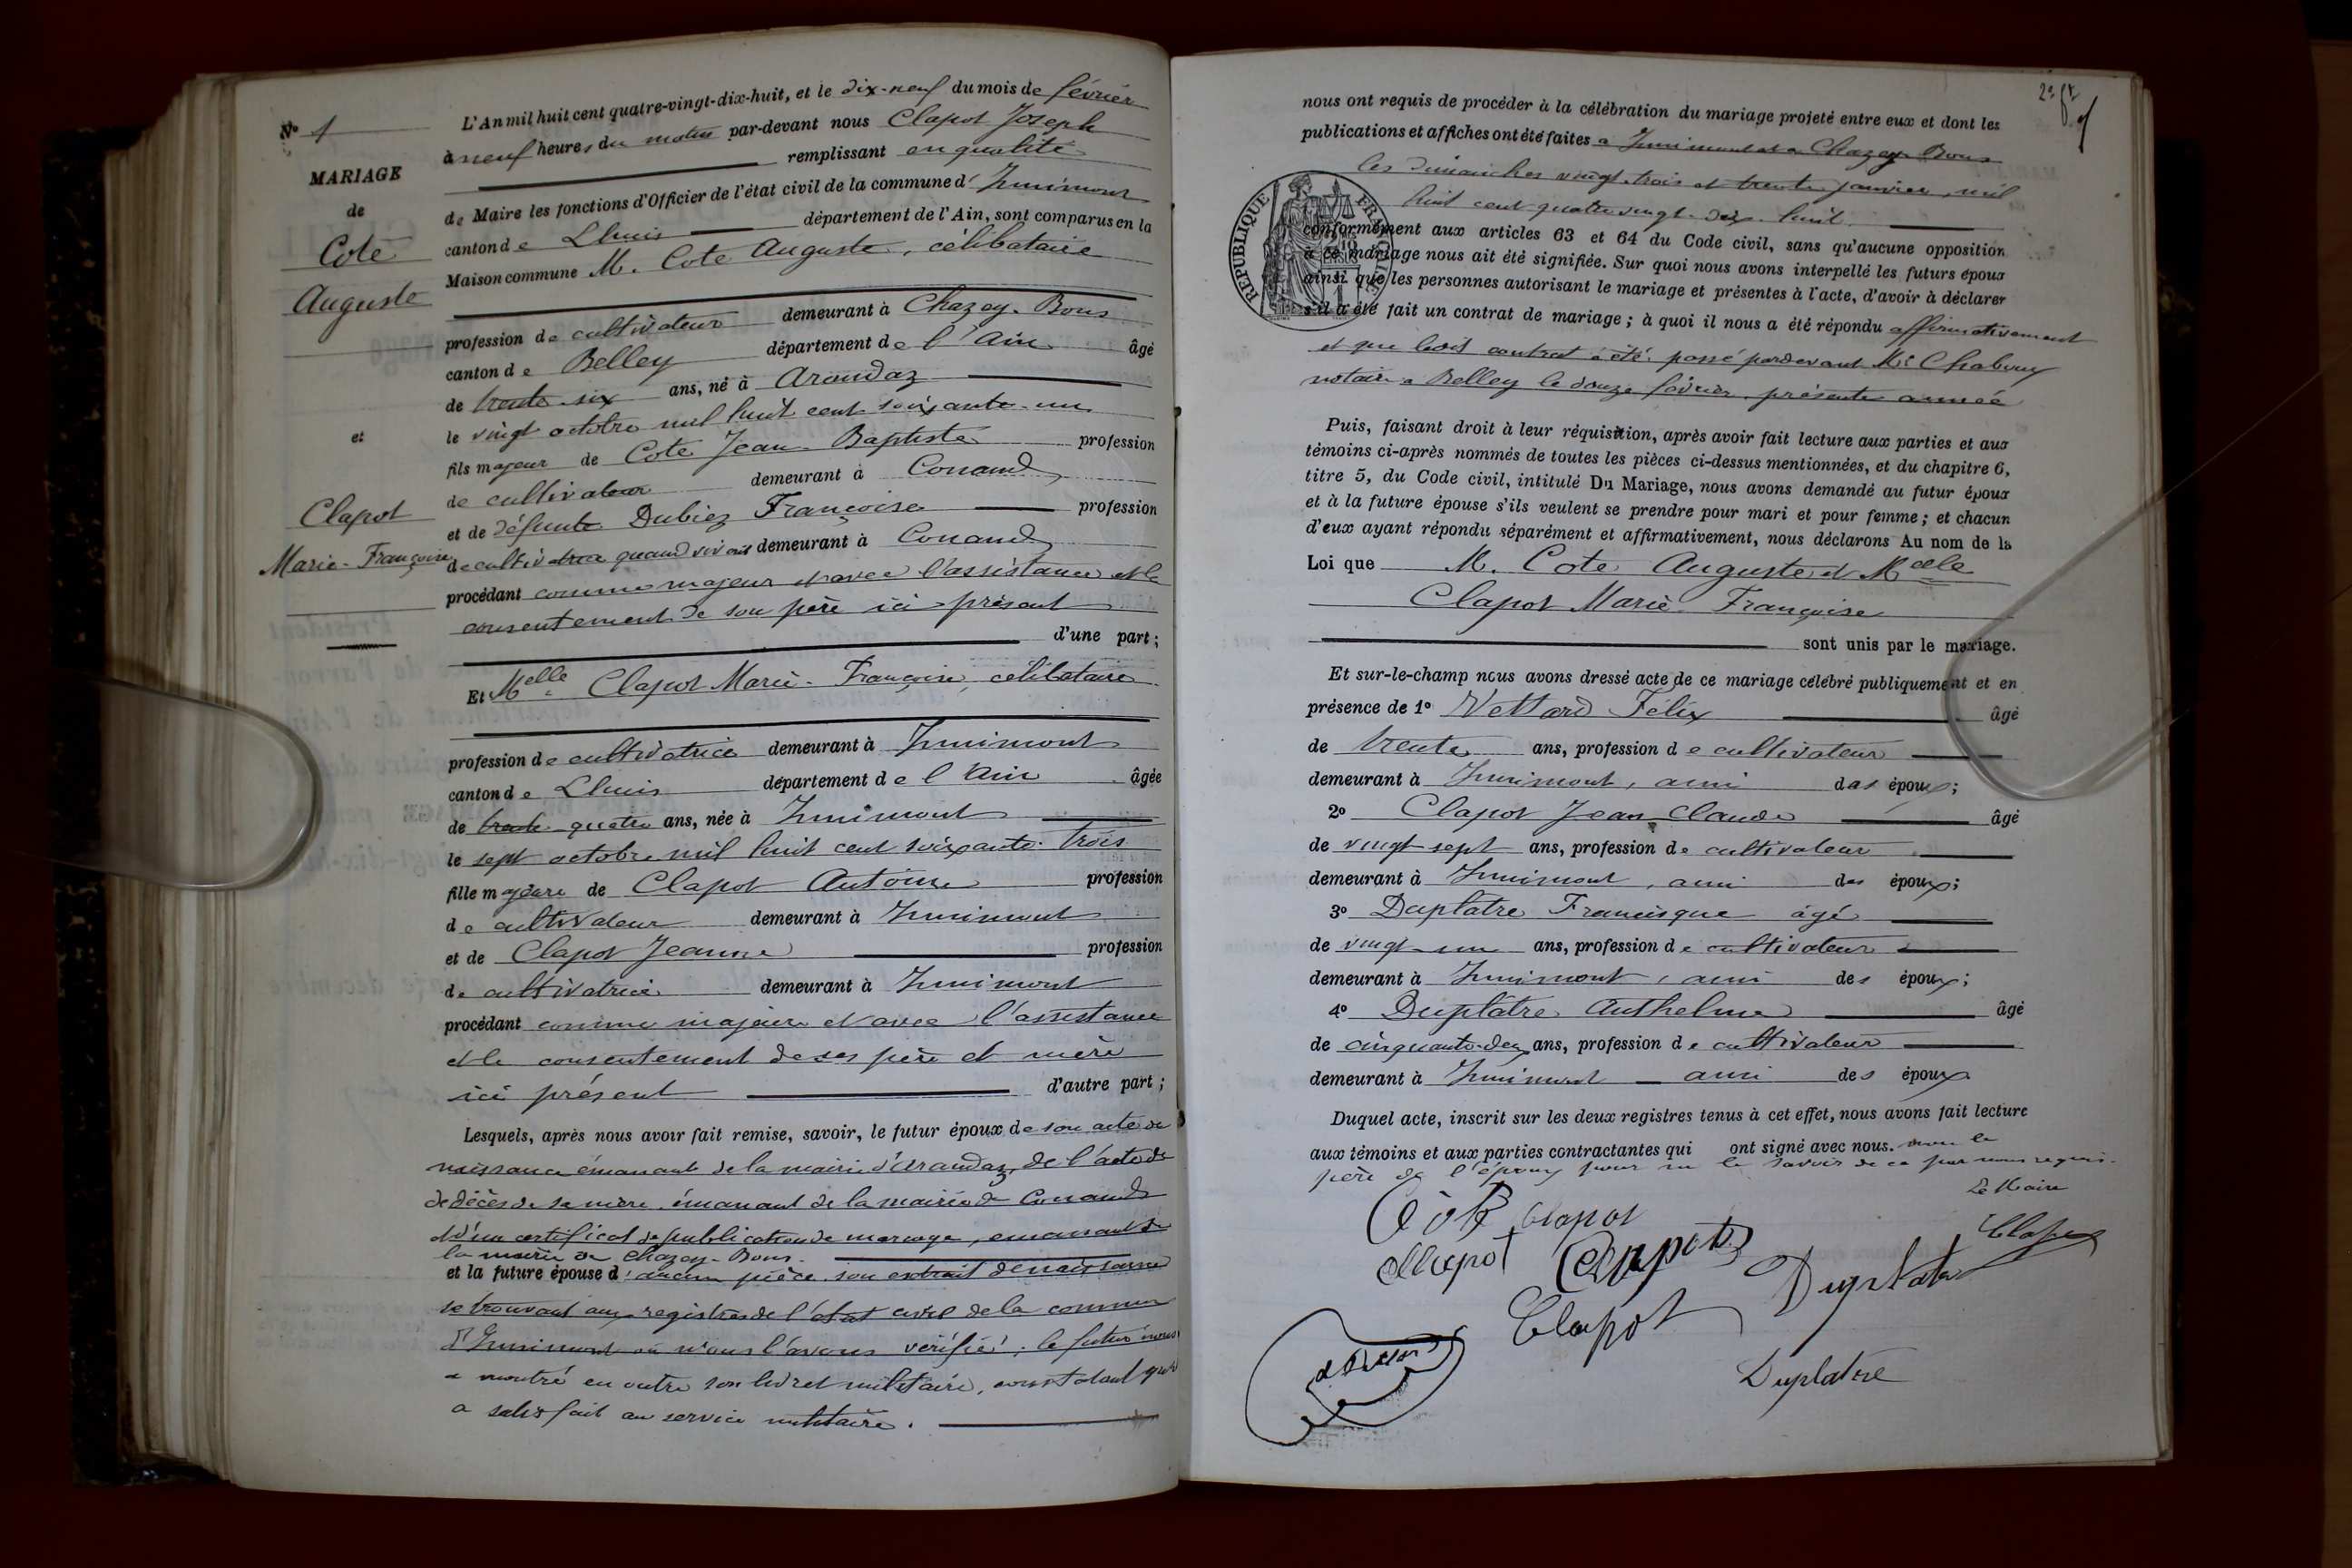 N° 1
MARIAGE
de
Cote
Auguste
et
Clapot
Marie-Françoise
L'An mil huit cent quatre-vingt-dix-huit, et le dix-neuf du mois de février
à neuf heures du matin par-devant nous Clapot Joseph
remplissant en qualité
de Maire les fonctions d'Officier de l'état civil de la commune d' Innimont
canton de Lhuis département de l'Ain, sont comparus en la
Maison commune M. Cote Auguste, célibataire
profession de cultivateur demeurant à Chazey-Bons
canton de Belley département de l'Ain âgé
de trente-six ans, né à Arandaz
le vingt octobre mil huit cent soixante-un
fils majeur de Cote Jean-Baptiste profession
de cultivateur demeurant à Conand
et de défunte Dubiez Françoise profession
de cultivatrice quand vivait demeurant à Conand
procédant comme majeur et avec l'assistance et le
consentement de son père ici présent
d'une part;
Et Melle Clapot Marie-Françoise, célibataire
profession de cultivatrice demeurant à Innimont
canton de Lhuis département de l'Ain âgée
de trente-quatre ans, née à Innimont
le sept octobre mil huit cent soixante-trois
fille majeure de Clapot Antoine profession
de cultivateur demeurant à Innimont
et de Clapot Jeanne profession
de cultivatrice demeurant à Innimont
procédant comme majeure et avec l'assistance
et le consentement de ses père et mère
ici présent d'autre part;
Lesquels, après nous avoir fait remise, savoir, le futur époux de son acte de
naissance émanant de la mairie d'Arandaz, de l'acte de
de décès de sa mère, émanant de la mairie de Conand
et d'un certificat de publication de mariage, émanant de
la mairie de Chazey-Bons.
et la future épouse d'aucune pièce, son extrait de naissance
se trouvant aux registres de l'état civil de la commune
d'Innimont où nous l'avons vérifié; le futur nous
a montré en outre son livret militaire, constatant qu'il
a satisfait au service militaire.
2e ft
nous ont requis de procéder à la célébration du mariage projeté entre eux et dont les
publications et affiches ont été faites à Innimont et à Chazey-Bons
les dimanches vingt-trois et trente janvier, mil
huit cent quatre-vingt-dix-huit
RÉPUBLIQUE FRANÇAISE
conformément aux articles 63 et 64 du Code civil, sans qu'aucune opposition
à ce mariage nous ait été signifiée. Sur quoi nous avons interpellé les futurs époux
ainsi que les personnes autorisant le mariage et présentes à l'acte, d'avoir à déclarer
s'il a été fait un contrat de mariage; à quoi il nous a été répondu affirmativement
et que ledit contrat a été passé pardevant Me Chabouy
notaire à Belley le douze février, présente année
Puis, faisant droit à leur réquisition, après avoir fait lecture aux parties et aux
témoins ci-après nommés de toutes les pièces ci-dessus mentionnées, et du chapitre 6,
titre 5, du Code civil, intitulé Du Mariage, nous avons demandé au futur époux
et à la future épouse s'ils veulent se prendre pour mari et pour femme; et chacun
d'eux ayant répondu séparément et affirmativement, nous déclarons Au nom de la
Loi que M. Cote Auguste et Melle
Clapot Marie-Françoise
sont unis par le mariage.
Et sur-le-champ nous avons dressé acte de ce mariage célébré publiquement et en
présence de 1° Vettard Félix âgé
de trente ans, profession de cultivateur
demeurant à Innimont, ami des époux;
2° Clapot Jean Claude âgé
de vingt-sept ans, profession de cultivateur
demeurant à Innimont, ami des époux;
3° Duplatre Francisque âgé
de vingt-un ans, profession de cultivateur
demeurant à Innimont, ami des époux;
4° Duplâtre Anthelme âgé
de cinquante-deux ans, profession de cultivateur
demeurant à Innimont ami des époux
Duquel acte, inscrit sur les deux registres tenus à cet effet, nous avons fait lecture
aux témoins et aux parties contractantes qui ont signé avec nous. non le
père de l'époux pour ne le savoir de ce par nous requis.
Le Maire
Côte Clapot
Clapot Clapot Clapot
Clapot Duplatre
Duplatre